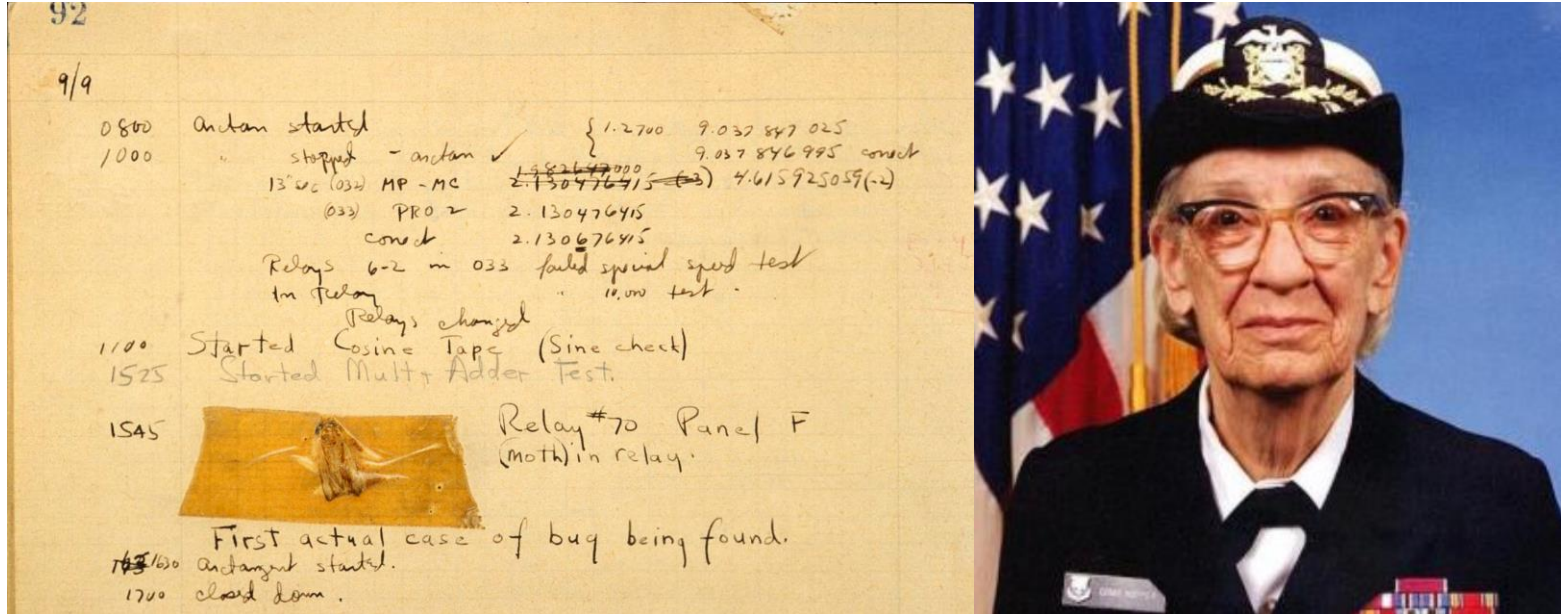 92
9/9
0800 arctan started { 1.2700 9.037 847 025
1000 " stopped - arctan ✓ 9.037 846 995 correct
13" sec (032) MP - MC 2.130476415 (-3) 4.615925059(-2)
(033) PRO 2 2.130476415
correct 2.130676415
Relays 6-2 in 033 failed special speed test
In Relay " 10,000 test .
Relays changed
1100 Started Cosine Tape (Sine check)
1525 Started Mult + Adder Test.
1545 Relay #70 Panel F
(moth) in relay.
First actual case of bug being found.
1630 arctangent started.
1700 closed down .
GRACE HOPPER